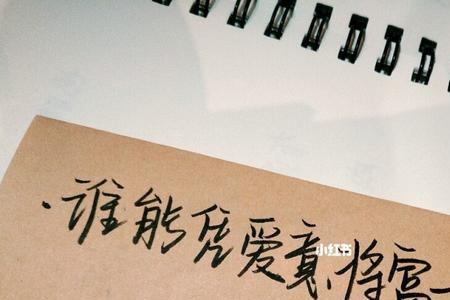 ·谁能凭爱意将富
小红书